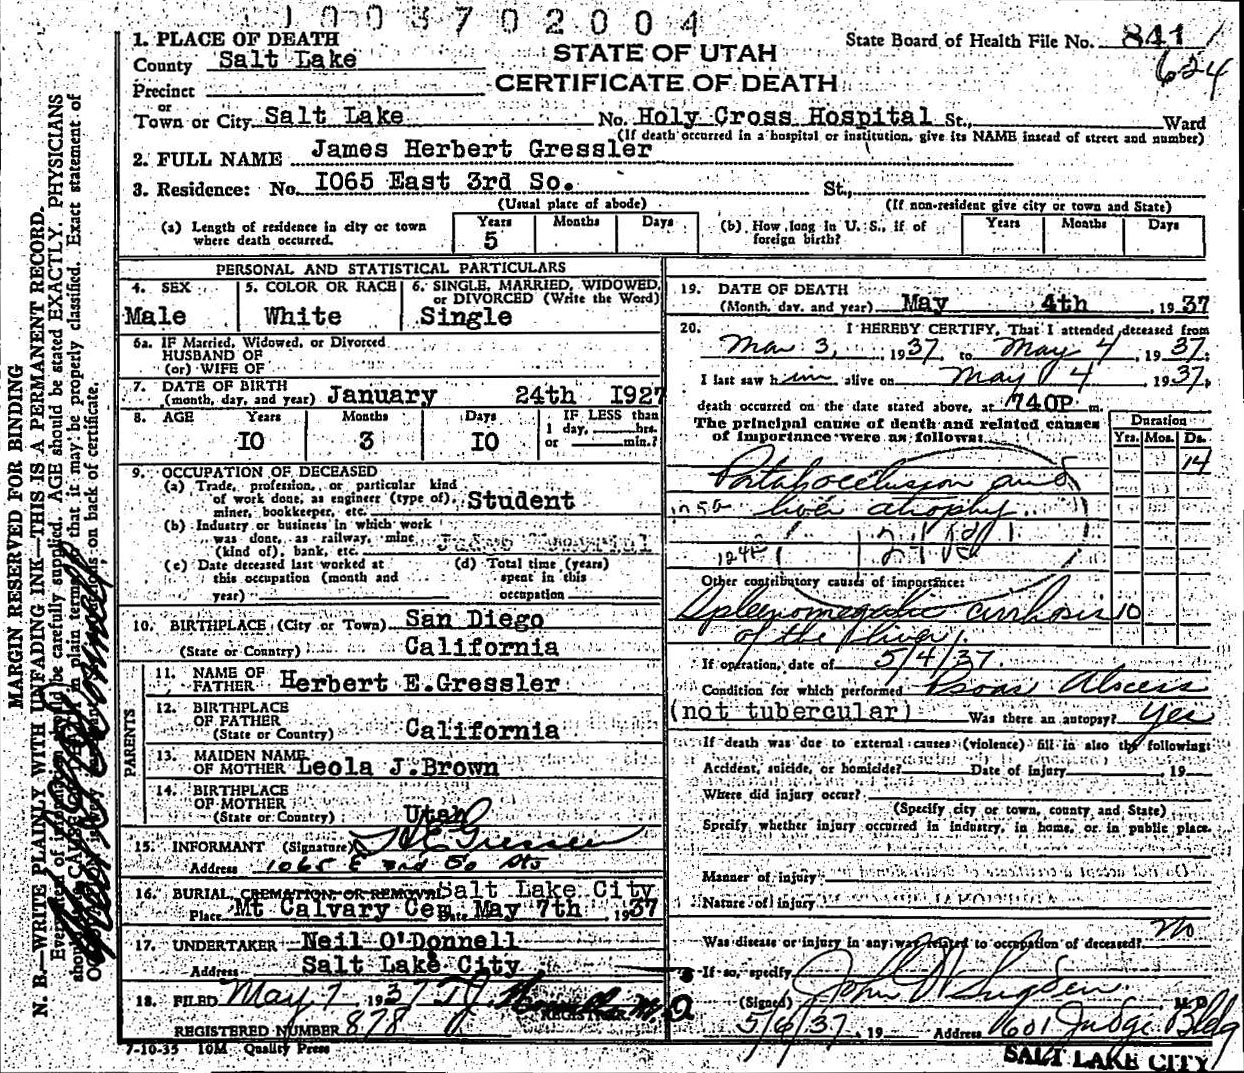 1003702004
1. PLACE OF DEATH
STATE OF UTAH
State Board of Health File No. 841
624
County Salt Lake
CERTIFICATE OF DEATH
Precinct
or
Town or City Salt Lake No. Holy Cross Hospital St., Ward
(If death occurred in a hospital or institution, give its NAME insead of street and number)
2. FULL NAME James Herbert Gressler
3. Residence: No. I065 East 3rd So. St.,
(Usual place of abode) (If non-resident give city or town and State)
(a) Length of residence in city or town where death occurred. Years 5 Months Days
(b) How long in U. S., if of foreign birth? Years Months Days
PERSONAL AND STATISTICAL PARTICULARS
4. SEX 5. COLOR OR RACE 6. SINGLE, MARRIED, WIDOWED, or DIVORCED (Write the Word)
Male White Single
6a. IF Married, Widowed, or Divorced
HUSBAND OF
(or) WIFE OF
7. DATE OF BIRTH
(month, day, and year) January 24th I927
8. AGE Years Months Days IF LESS than
1 day, hrs.
or min.?
IO 3 IO
9. OCCUPATION OF DECEASED
(a) Trade, profession, or particular kind
of work done, as engineer (type of),
miner, bookkeeper, etc. Student
(b) Industry or business in which work
was done, as railway, mine
(kind of), bank, etc.
(c) Date deceased last worked at
this occupation (month and
year)
(d) Total time (years)
spent in this
occupation
10. BIRTHPLACE (City or Town) San Diego
(State or Country) California
PARENTS
11. NAME OF
FATHER Herbert E.Gressler
12. BIRTHPLACE
OF FATHER
(State or Country) California
13. MAIDEN NAME
OF MOTHER Leola J.Brown
14. BIRTHPLACE
OF MOTHER
(State or Country) Utah
15. INFORMANT (Signature) H E Gressler
Address 1065 E 3rd So Sts
16. BURIAL CREMATION, OR REMOVAL Salt Lake City
Place Mt Calvary Cem Date May 7th 1937
17. UNDERTAKER Neil O'Donnell
Address Salt Lake City
18. FILED May 7 1937 T.J. M.D.
REGISTRAR
REGISTERED NUMBER 878
7-10-35 10M Quality Press
19. DATE OF DEATH
(Month, day, and year) May 4th, 1937
20. I HEREBY CERTIFY, That I attended deceased from
Mar 3, 1937 to May 4, 1937;
I last saw him alive on May 4 1937,
death occurred on the date stated above, at 740P m.
The principal cause of death and related causes
of importance were as follows:
Duration
Yrs. Mos. Ds.
14
Portal occlusion and
liver atrophy.
124
Other contributory causes of importance:
Splenomegalic cirrhosis 10
of the liver.
If operation, date of 5/4/37.
Condition for which performed Psoas Abscess
(not tubercular) Was there an autopsy? yes
If death was due to external causes (violence) fill in also the following:
Accident, suicide, or homicide? Date of injury , 19
Where did injury occur?
(Specify city or town, county and State)
Specify whether injury occurred in industry, in home, or in public place.
Manner of injury
Nature of injury
Was disease or injury in any way related to occupation of deceased? no
If so, specify
(Signed) John W Sugden M D
5/6/37, 19 Address 601 Judge Bldg
SALT LAKE CITY
MARGIN RESERVED FOR BINDING
N. B.—WRITE PLAINLY WITH UNFADING INK—THIS IS A PERMANENT RECORD.
Every item of information should be carefully supplied. AGE should be stated EXACTLY. PHYSICIANS
should state CAUSE OF DEATH in plain terms, so that it may be properly classified. Exact statement of
OCCUPATION is very important. See instructions on back of certificate.